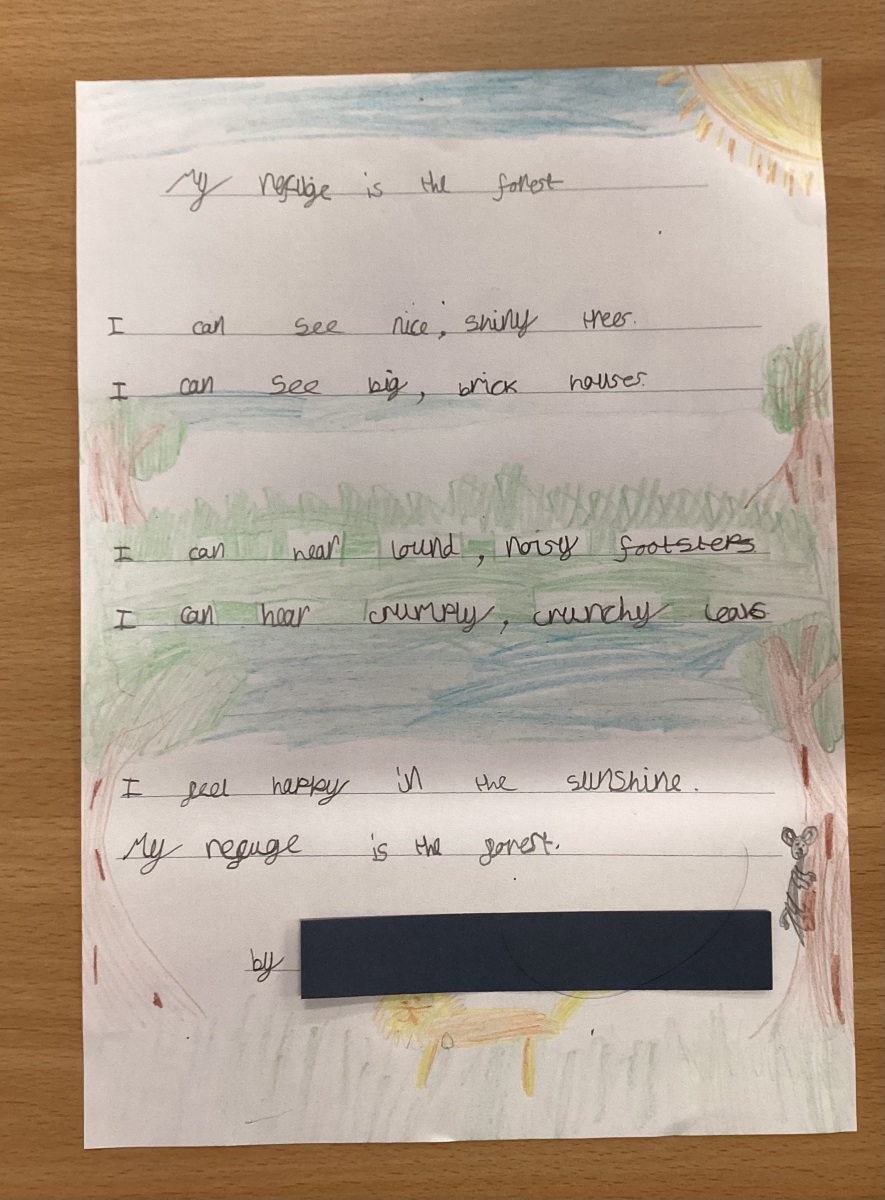 My refuge is the forest
I can see nice, shiny trees.
I can see big, brick houses.
I can hear lound, noisy footsteps
I can hear crumply, crunchy leavs
I feel happy in the sunshine.
My refuge is the forest.
by